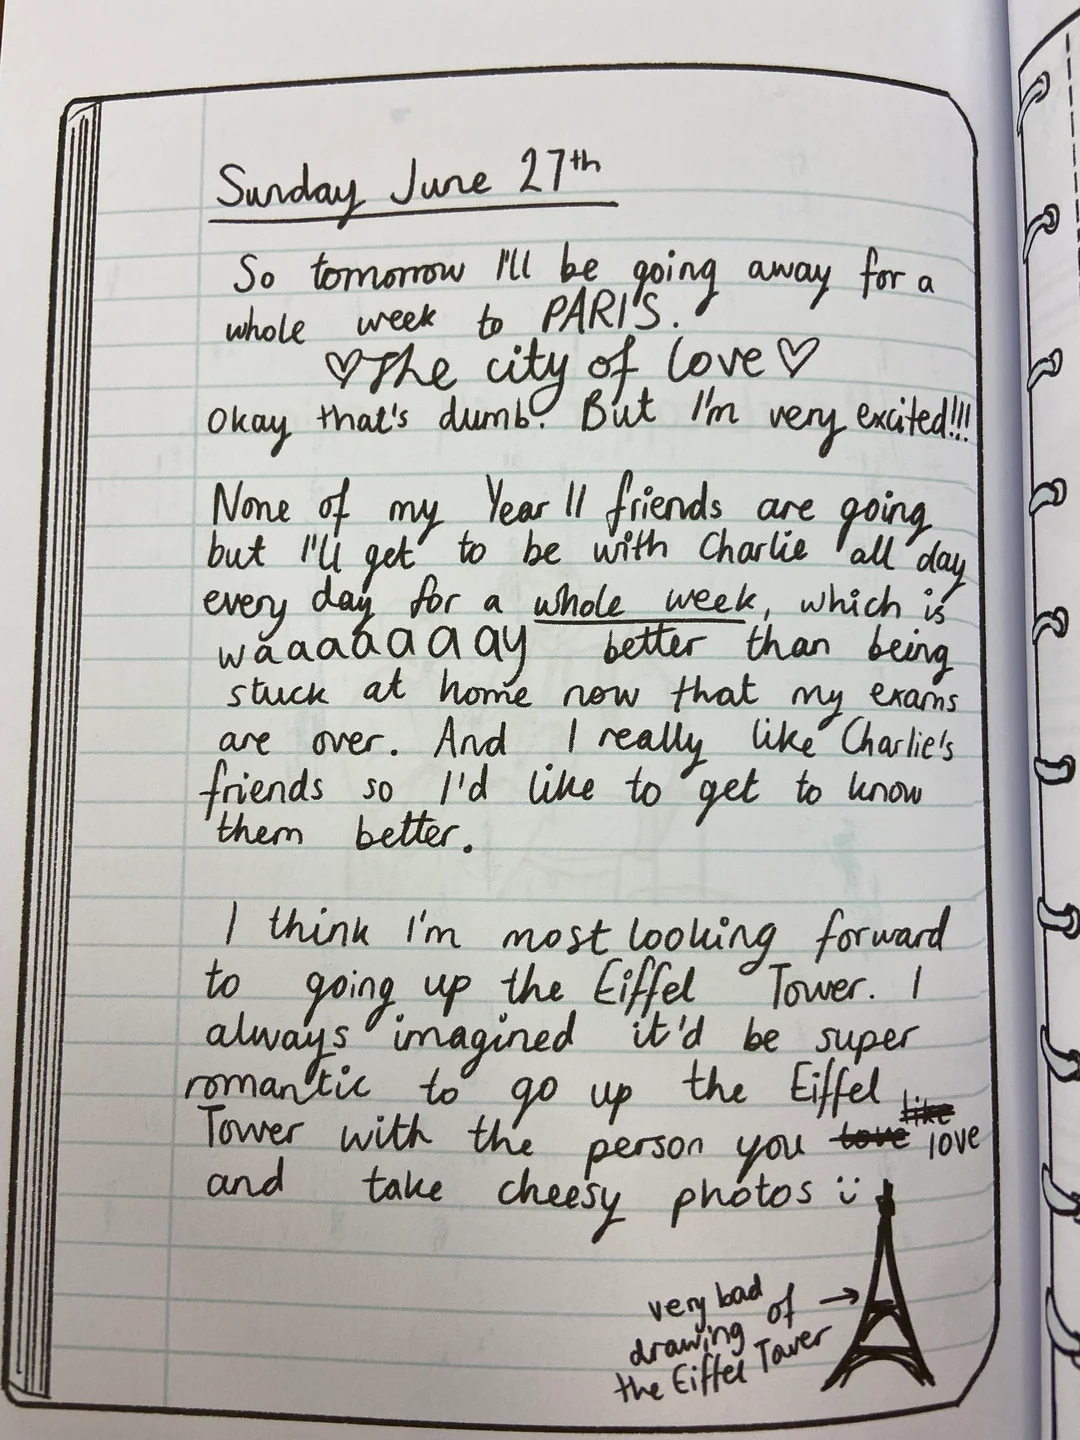 Sunday June 27th
So tomorrow I'll be going away for a
whole week to PARIS.
♡The city of love♡
Okay that's dumb. But I'm very excited!!!
None of my Year 11 friends are going
but I'll get to be with Charlie all day
every day for a whole week, which is
waaaaaaay better than being
stuck at home now that my exams
are over. And I really like Charlie's
friends so I'd like to get to know
them better.
I think I'm most looking forward
to going up the Eiffel Tower. I
always imagined it'd be super
romantic to go up the Eiffel
Tower with the person you love like love
and take cheesy photos ü
very bad
drawing of →
the Eiffel Tower